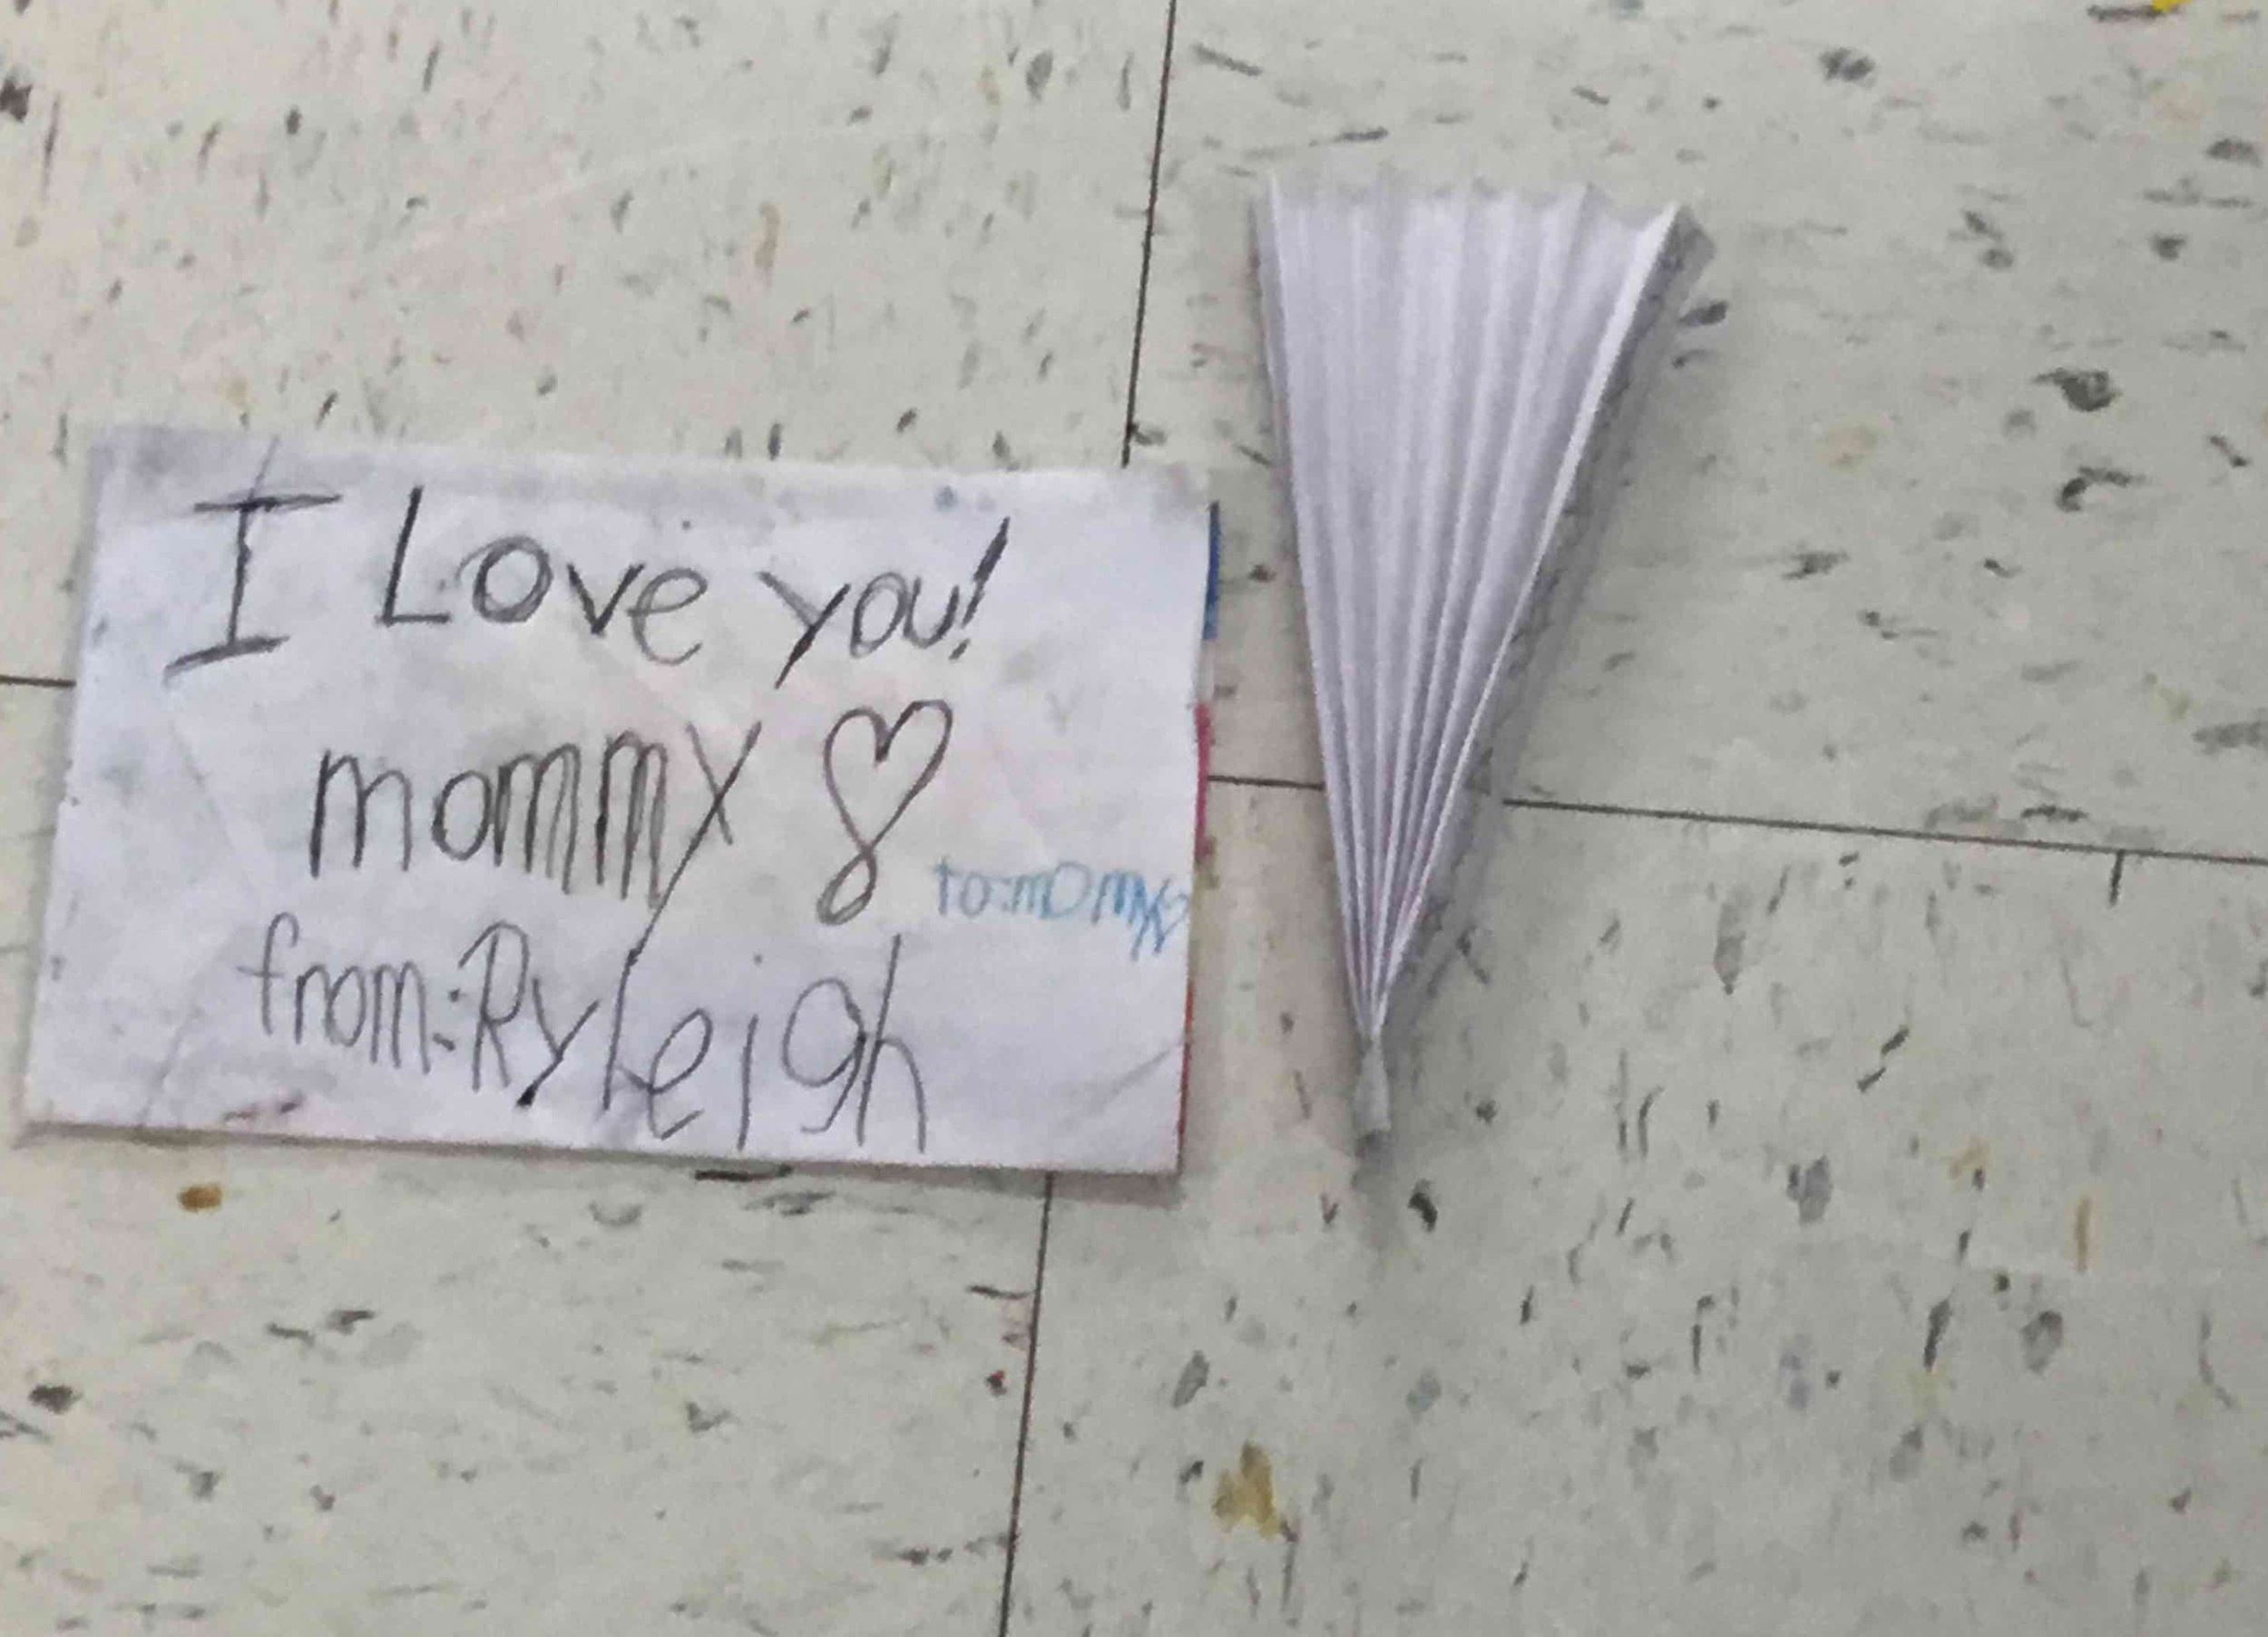 I Love you!
mommy ♡
to: mommy
from: Ryleigh